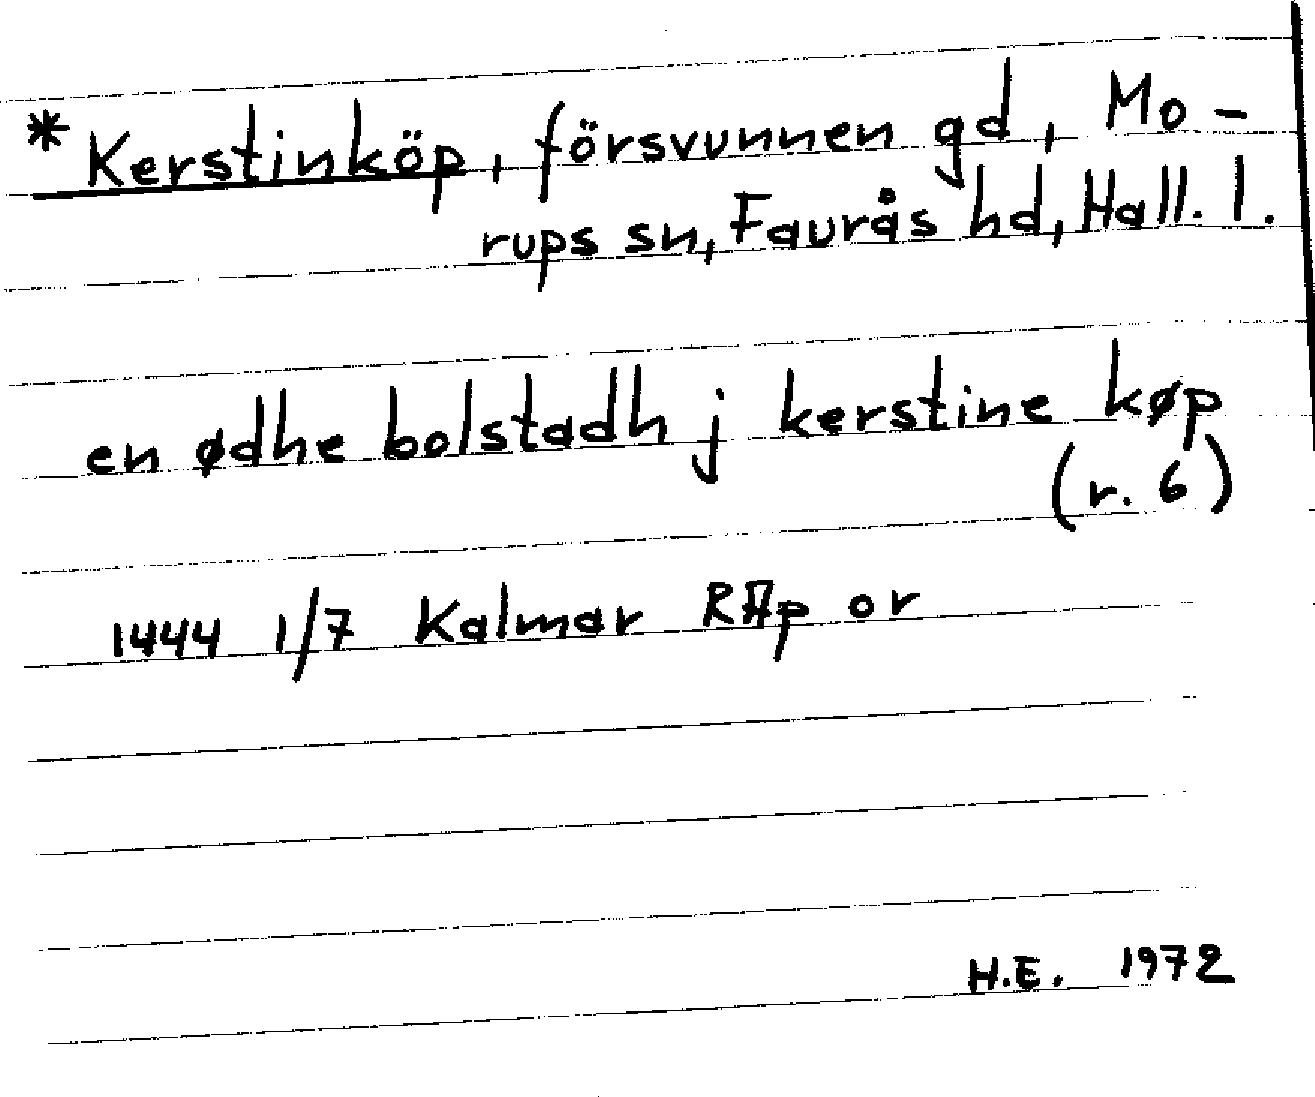 * Kerstinköp, försvunnen gd, Mo-
rups sn, Faurås hd, Hall. l.
en ødhe bolstadh j kerstine køp
(r. 6)
1444 1/7 Kalmar RAp or
H.E. 1972